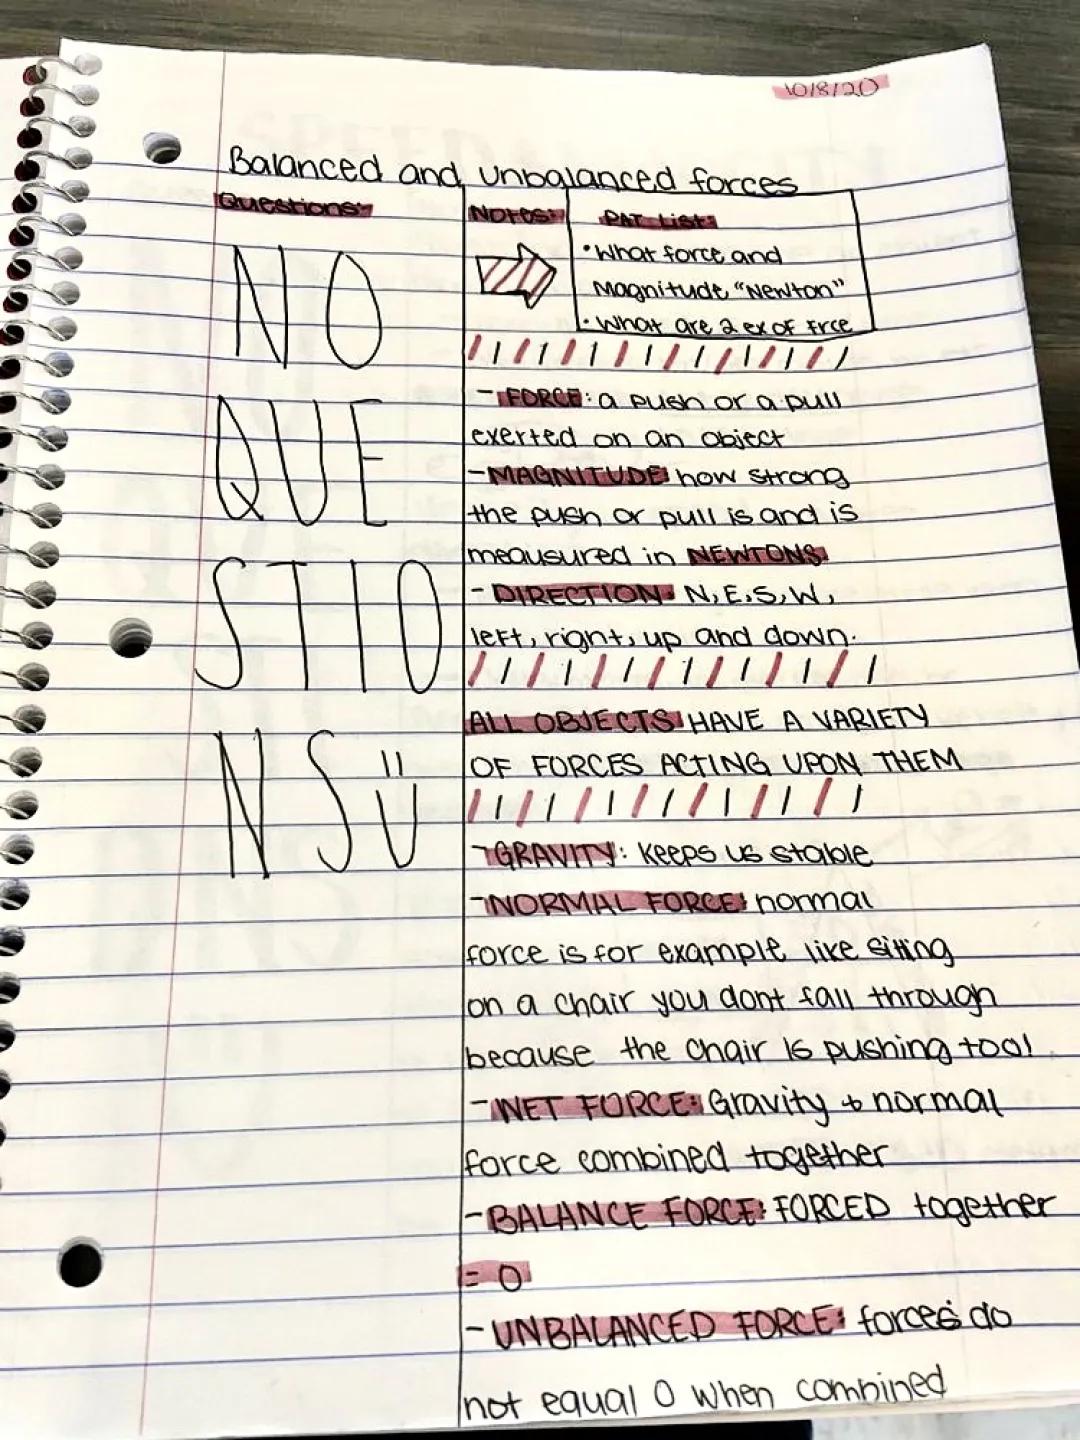 10/8/20
Balanced and unbalanced forces
Questions:
NO
QUE
STIO
NS Ü
Notes:
PAT List:
• What force and
Magnitude "Newton"
• What are 2 ex of frce
- FORCE: a push or a pull
exerted on an object
- MAGNITUDE: how strong
the push or pull is and is
meausured in NEWTONS.
- DIRECTION: N, E, S, W,
left, right, up and down.
ALL OBJECTS HAVE A VARIETY
OF FORCES ACTING UPON THEM
- GRAVITY: keeps us stable
- NORMAL FORCE: normal
force is for example like sitting
on a chair you dont fall through
because the chair is pushing too!
- NET FORCE: Gravity + normal
force combined together
- BALANCE FORCE: FORCED together
= 0
- UNBALANCED FORCE: forces do
not equal 0 when combined